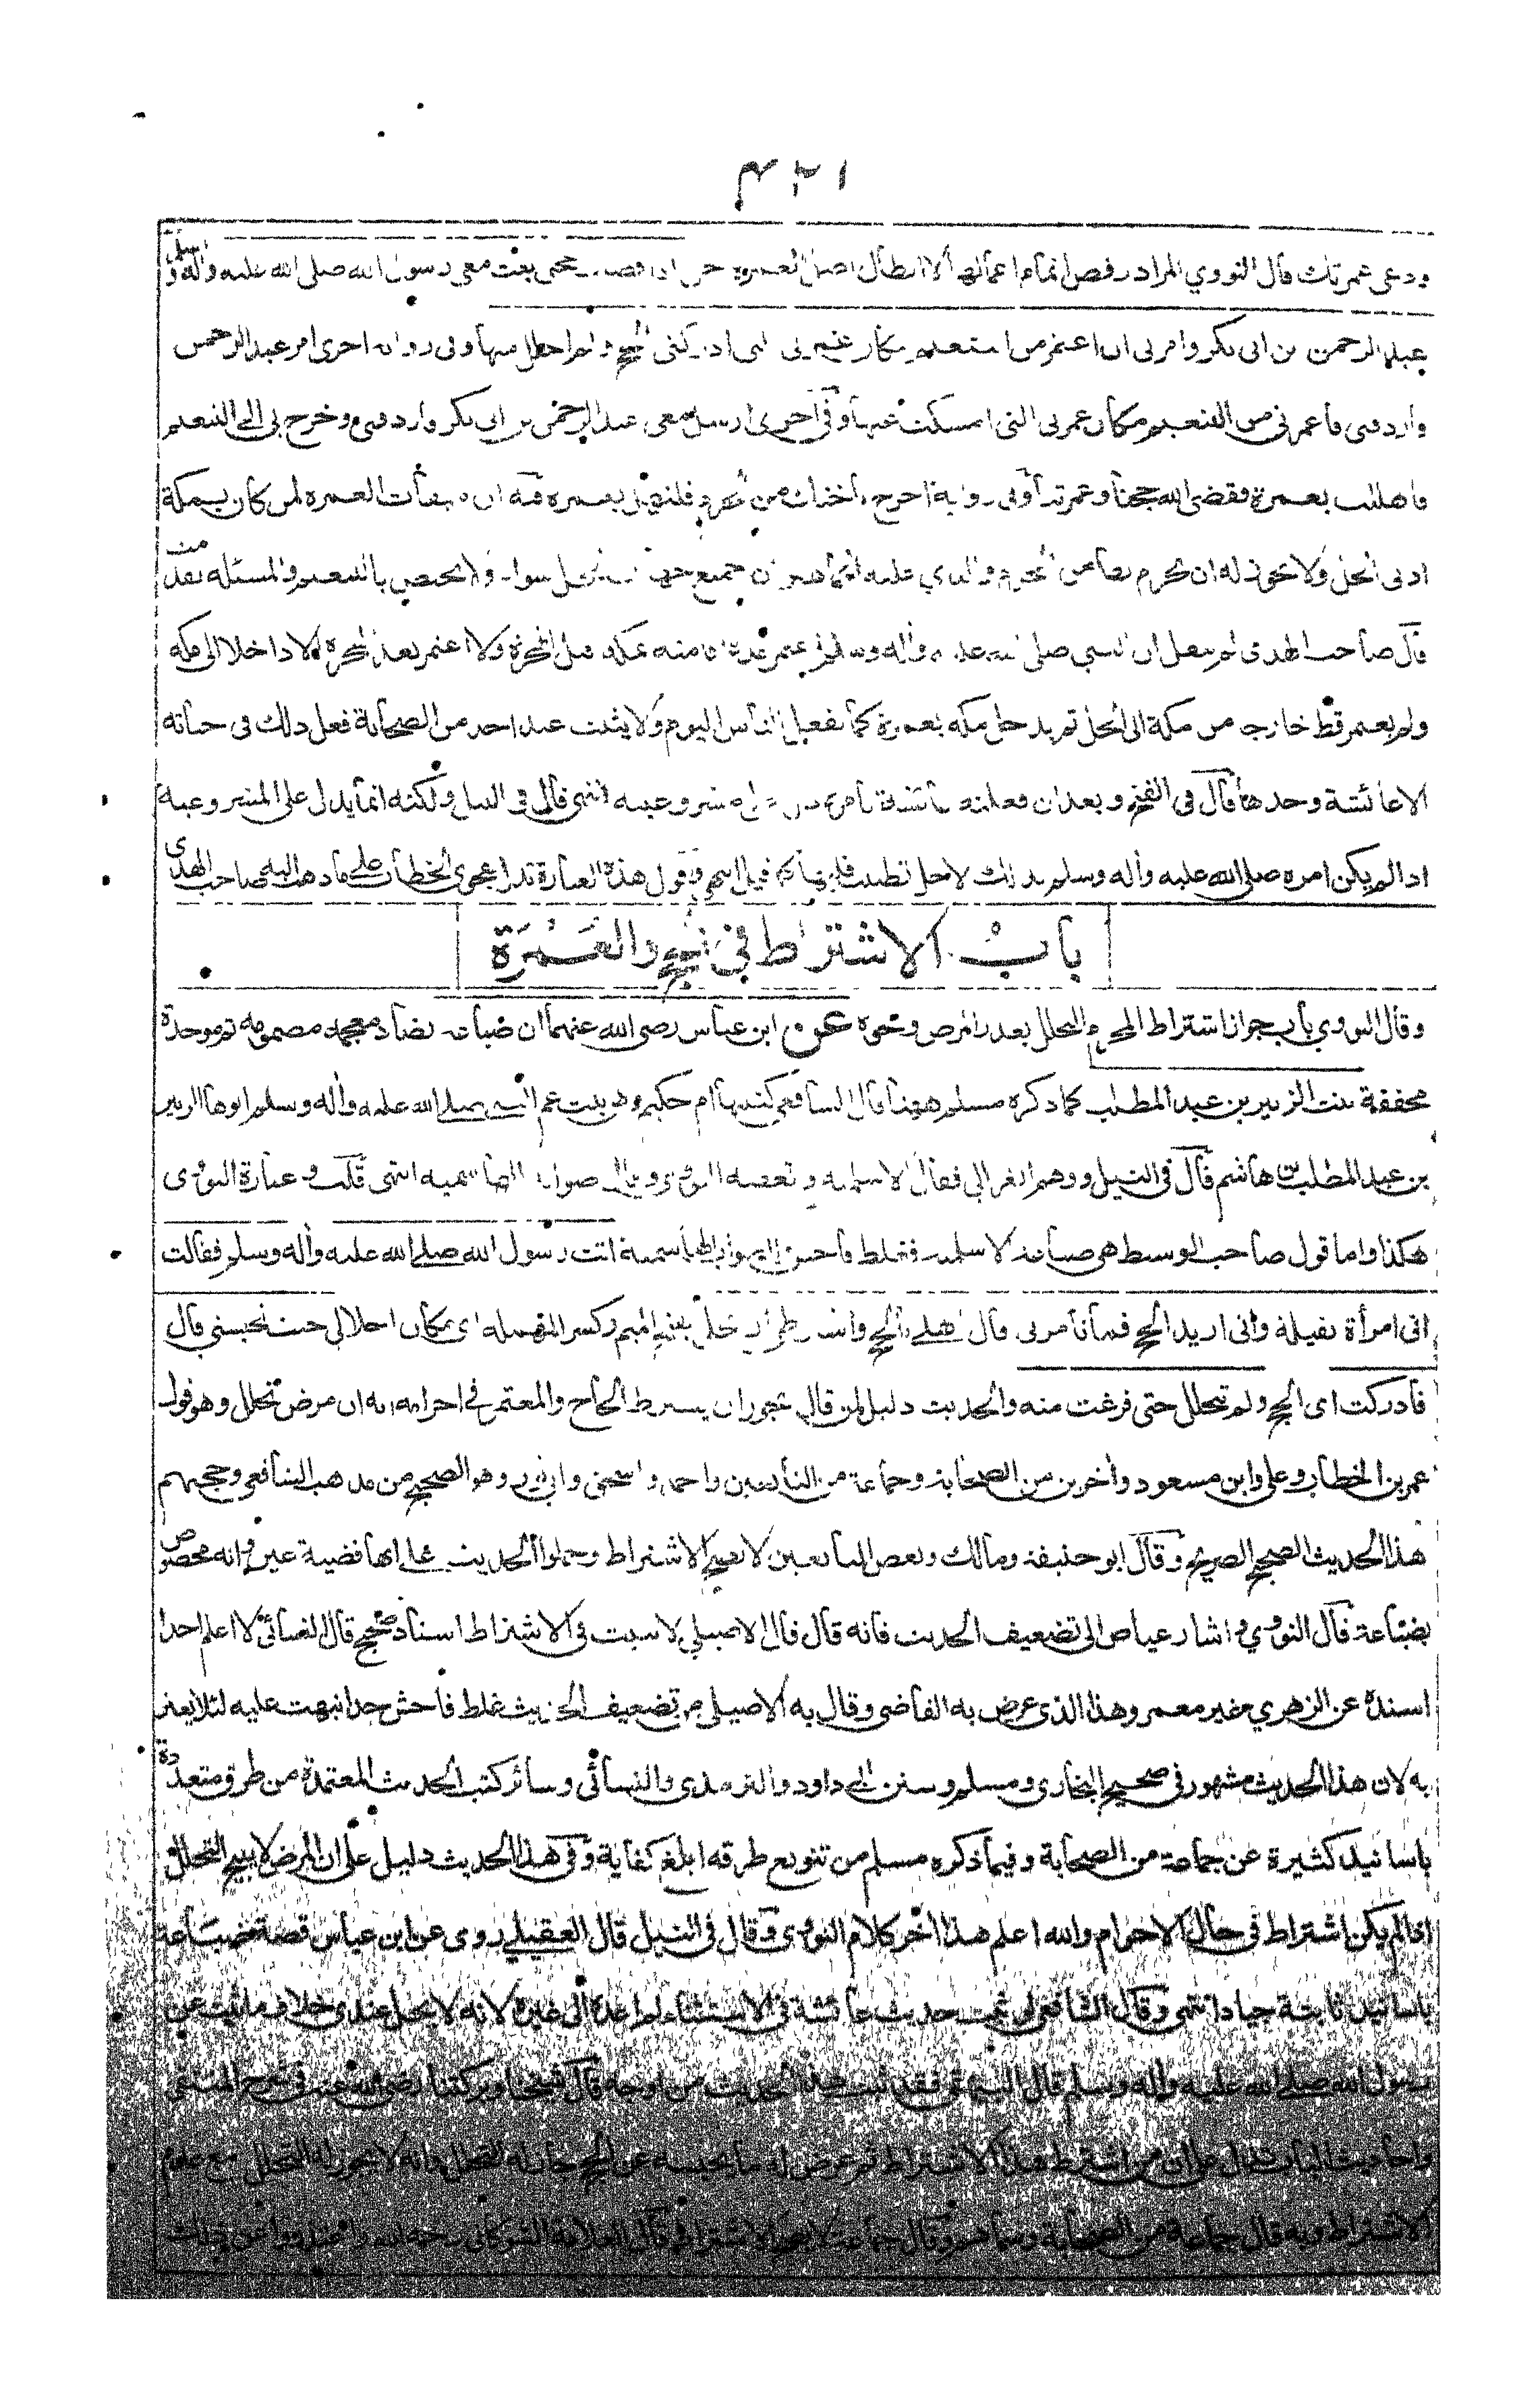 ودعى عمرتك قال النووي المراد رفض اتمام اعمالها لا ابطال اصل العمرة حتى اذا قضيت حجي بعث معي رسول الله صلى الله عليه واله وسلم
عبد الرحمن بن ابي بكر وامرني ان اعتمر من التنعيم مكان عمرتي التي ادركني الحج ولم احلل منها وفي رواية اخرى امر عبد الرحمن
واردفني فاعمرني من التنعيم مكان عمرتي التي امسكت عنها وفي اخرى ارسل معي عبد الرحمن بن ابي بكر واردفني وخرج بي الى التنعيم
فاهللت بعمرة فقضى الله حجنا وعمرتنا وفي رواية اخرج باختك من الحرم فلتهل بعمرة فيه ان ميقات العمرة لمن كان بمكة
ادنى الحل ولا يجوز له ان يحرم بها من الحرم والذي عليه الجماهير ان جميع جهات الحل سواء ولا يختص بالتنعيم والمسئلة تقدمت
قال صاحب الهدى لم ينقل ان النبي صلى الله عليه واله وسلم اعتمر مدة اقامته بمكة قبل الهجرة ولا اعتمر بعد الهجرة الا داخلا الى مكة
ولم يعتمر قط خارجا من مكة الى الحل ثم يدخل مكة بعمرة كما يفعل الناس اليوم ولا يثبت عند احد من الصحابة فعل ذلك في حياته
الا عائشة وحدها قال في الفتح وبعد ان فعلته عائشة بامره دل على مشروعيته انتهى قال في النيل ولكنه انما يدل على المشروعية
اذا لم يكن امره صلى الله عليه واله وسلم بذلك لاجل تطييب قلبها كما قيل انتهى وقول هذه العبارة على ما ذهب اليه صاحب الهدى
باب الاشتراط في الحج والعمرة
وقال النووي باب جواز اشتراط المحرم التحلل بعذر المرض ونحوه عن ابن عباس رضي الله عنهما ان ضباعة بضاد معجمة مضمومة ثم موحدة
مخففة بنت الزبير بن عبد المطلب كما ذكره مسلم ههنا قال الشافعي كنيتها ام حكيم وهي بنت عم النبي صلى الله عليه واله وسلم ابوها الزبير
بن عبد المطلب بن هاشم قال في النيل ووهم الغزالي فقال الاسلمية وتعقبه النووي وقال صوابه الهاشمية انتهى قلت وعبارة النووي
هكذا واما قول صاحب الوسيط هي ضباعة الاسلمية فغلط فاحش والصواب الهاشمية اتت رسول الله صلى الله عليه واله وسلم فقالت
اني امرأة ثقيلة واني اريد الحج فما تامرني قال اهلي بالحج واشترطي ان محلي بفتح الميم وكسر المهملة اي مكان احلالي حيث تحبسني قال
فادركت اي الحج ولم تتحلل حتى فرغت منه والحديث دليل لمن قال يجوز ان يشترط الحاج والمعتمر في احرامه انه ان مرض تحلل وهو قول
عمر بن الخطاب وعلي وابن مسعود واخرين من الصحابة وجماعة من التابعين واحمد واسحق وابي ثور وهو الصحيح من مذهب الشافعي وحجتهم
هذا الحديث الصحيح الصريح وقال ابو حنيفة ومالك وبعض التابعين لا يصح الاشتراط وحملوا الحديث على انها قضية عين وانه مخصوص
بضباعة قال النووي واشار عياض الى تضعيف الحديث فانه قال قال الاصيلي لا يثبت في الاشتراط اسناد صحيح قال النسائي لا اعلم احدا
اسنده عن الزهري غير معمر وهذا الذي عرض به القاضي وقال به الاصيلي من تضعيف الحديث غلط فاحش جدا نبهت عليه لئلا يغتر
به لان هذا الحديث مشهور في صحيح البخاري ومسلم وسنن ابي داود والترمذي والنسائي وسائر كتب الحديث المعتمدة من طرق متعددة
باسانيد كثيرة عن جماعة من الصحابة وفيما ذكره مسلم من تنويع طرقه ابلغ كفاية وفي هذا الحديث دليل على ان المرض لا يبيح التحلل
اذا لم يكن اشتراط في حال الاحرام والله اعلم هذا اخر كلام النووي وقال في النيل قال العقيلي روى عن ابن عباس قصة ضباعة
باسانيد ثابتة جياد انتهى وقال الشافعي لو ثبت حديث عائشة في الاستثناء لم اعده الى غيره لانه لا يحل عندي خلاف ما ثبت عن
رسول الله صلى الله عليه واله وسلم قال البيهقي فقد ثبت هذا الحديث من اوجه قال شيخنا وبركتنا رضي الله عنه في شرح المنتقى
واحاديث الباب تدل على ان من اشترط هذا الاشتراط ثم عرض له ما يحبسه عن الحج جاز له التحلل وانه لا يجوز له التحلل مع عدم
الاشتراط وبه قال جماعة من الصحابة وقال جماعة لا يصح الاشتراط قال العلامة الشوكاني رحمه الله